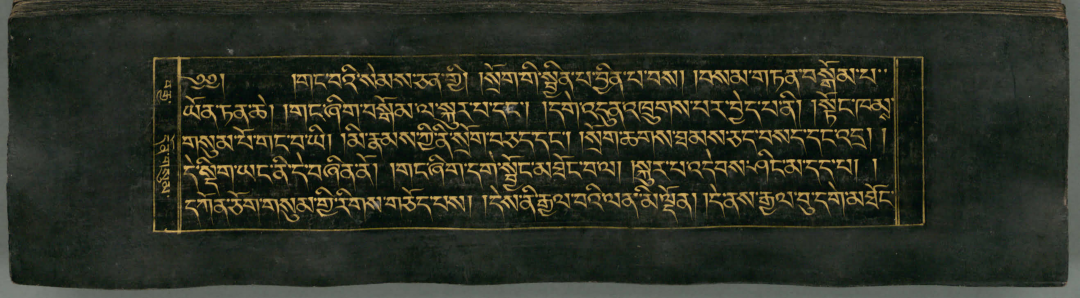 ༄༅། །གང་བའི་སེམས་ཅན་གྱི། །སྲོག་གི་སྦྱིན་པ་བྱིན་པ་བས། །བསམ་གཏན་བསྒོམ་པ་
ཡོན་ཏན་ཆེ། །གང་ཞིག་བསྒོམ་ལ་སྐུར་པ་དང་། །དགེ་འདུན་འཁྲུགས་པར་བྱེད་པ་ནི། །སྟོང་ཁམས་
གསུམ་པོ་གང་བ་ཡི། །མི་རྣམས་ཀྱི་ནི་སྲོག་བཅད་དང་། །སྲོག་ཆགས་ཐམས་ཅད་བསད་དང་འདྲ། །
དེ་སྡིག་ཡང་ནི་དེ་བཞིན་ནོ། །གང་ཞིག་དགེ་སྦྱོང་མཐོང་བ་ལ། །སྐུར་པ་འདེབས་ཤིང་མ་དད་པ། །
དཀོན་ཅོག་གསུམ་གྱི་རིགས་གཅོད་པས། །དེས་ནི་རྒྱལ་བའི་ལན་མི་ལྡོན། །དེ་ནས་རྒྱལ་བུ་དགེ་མཐོང་